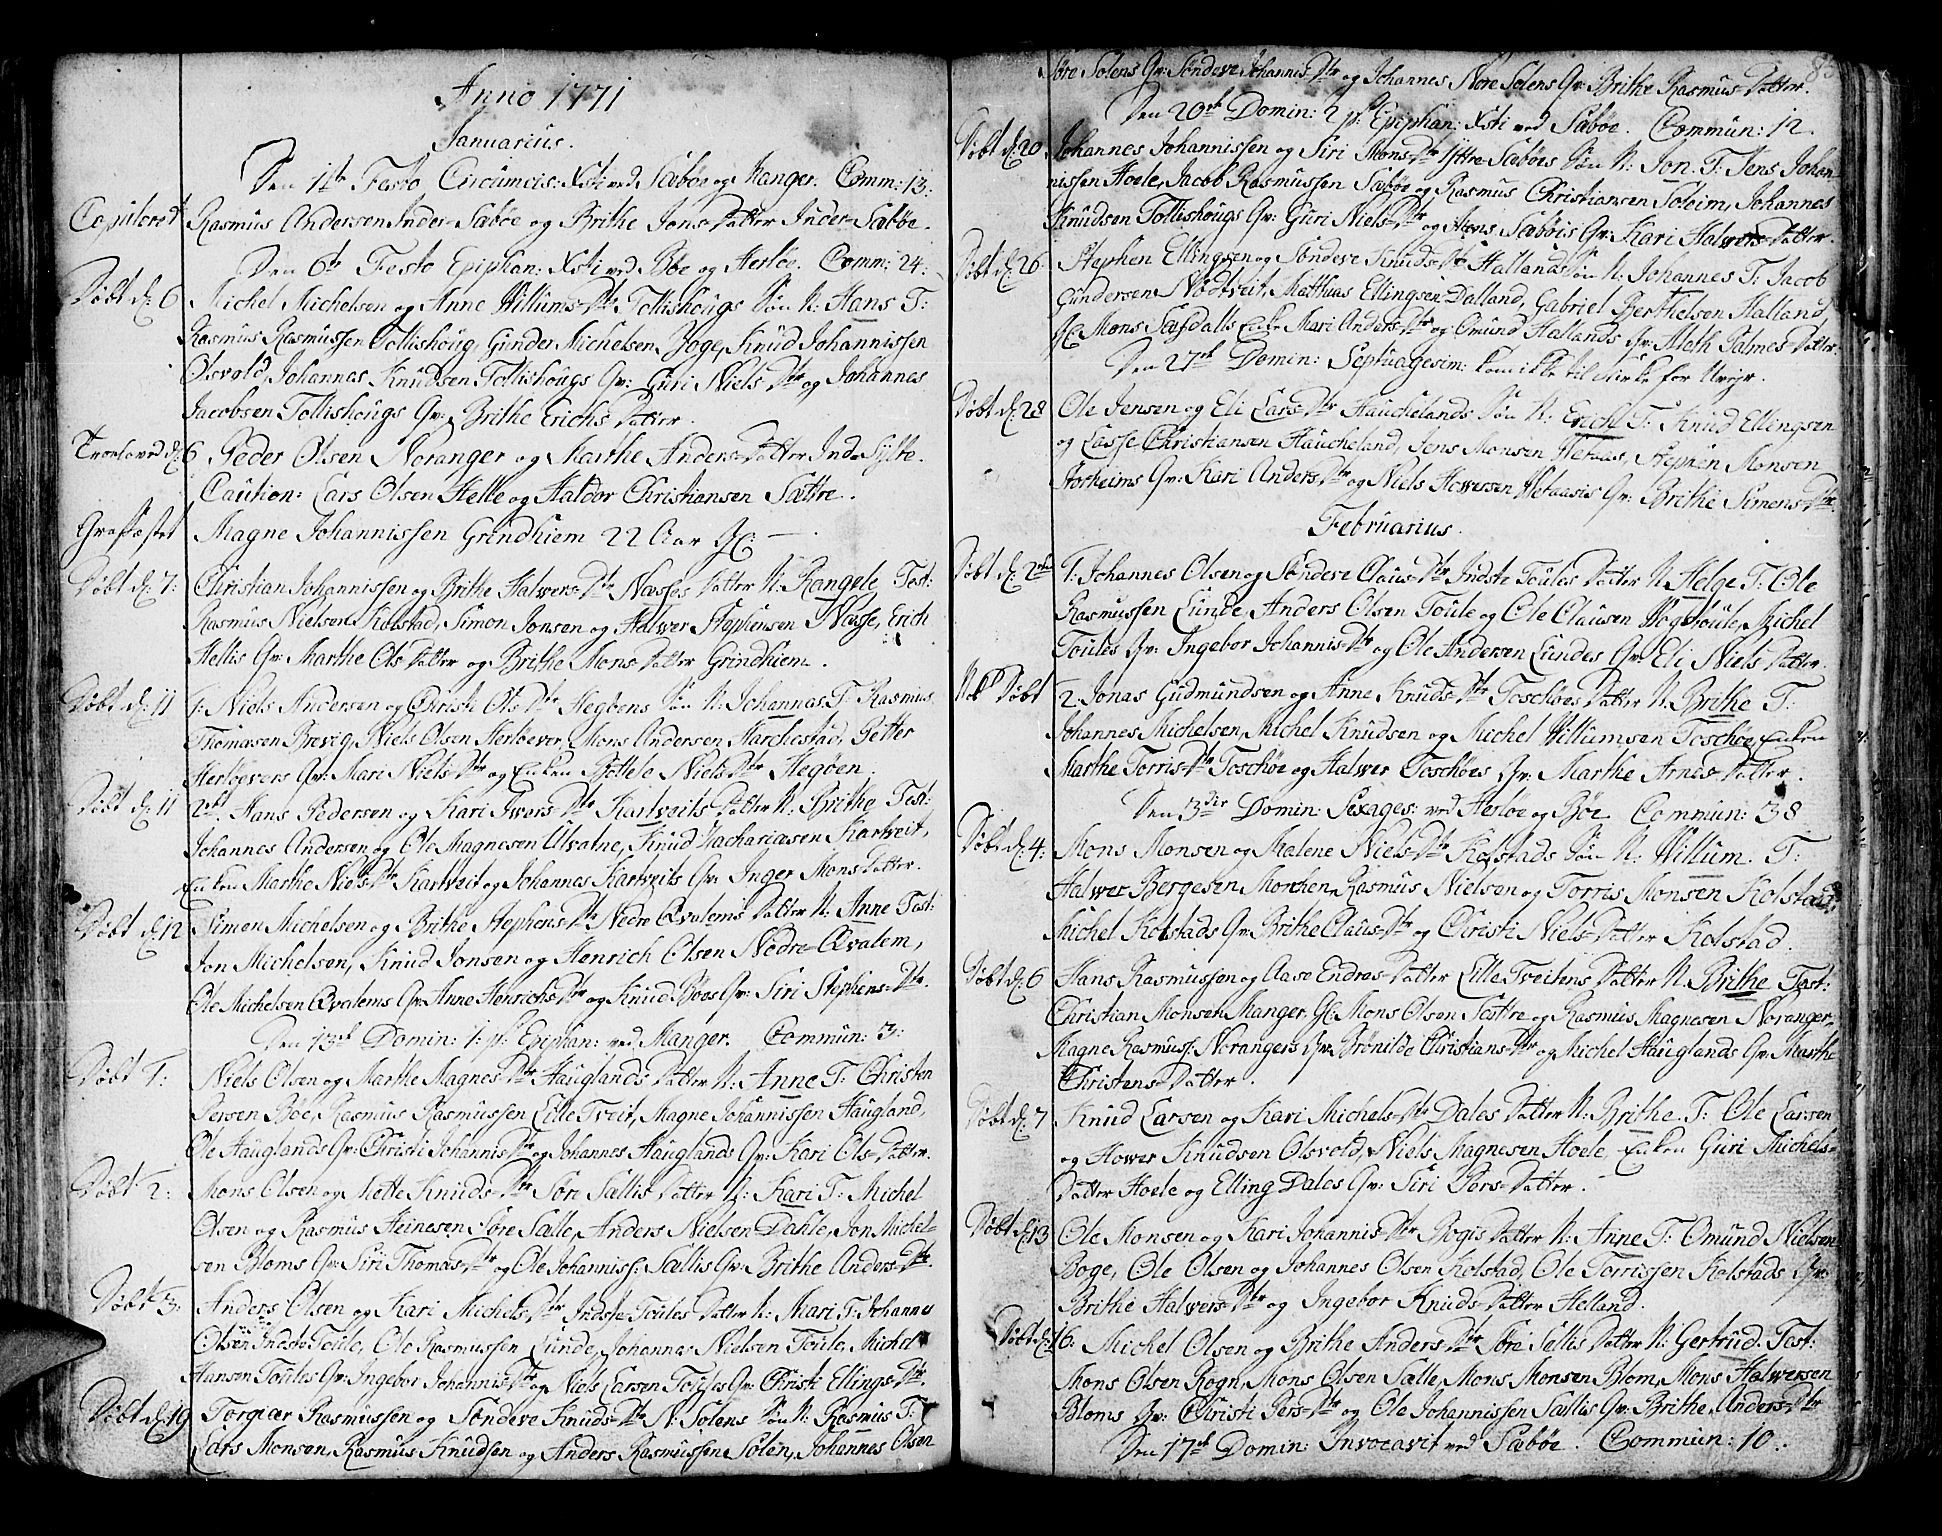 Anno 1771
Januarius.
Den 1te Festo Circumcis: Xsti ved Sæbøe og Manger. Comm: 13.
Copuleret Rasmus Andersen Inder-Sæbøe og Brithe Jons-Datter Inder-Sæbøe.
Den 6te Festo Epiphan: Xsti ved Bøe og Herløe. Comm: 24.
Døbt d: 6 Michel Michelsen og Anne Willums-Dtr Tollishougs Søn N: Hans T:
Rasmus Rasmussen Tollishoug, Gunder Michelsen Boge, Knud Johannissen
Olsvold, Johannes Knudsen Tollishougs Qv: Guri Niels-Dtr og Johannes
Jacobsen Tollishougs Qv: Brithe Erichs-Datter.
Troeloved d: 6 Peder Olsen Noranger og Marthe Anders-Datter Inde Sylte.
Caution: Lars Olsen Helle og Haldor Christiansen Sættre.
Græsfæstet Magne Johannissen Grindhiem 22 Aar
Døbt d: 7: Christian Johannissen og Brithe Halvers-Dtr Næsses Datter N: Rangele, Test:
Rasmus Nielsen Kolstad, Simon Jonsen og Halver Stephensen Næsse, Erich
Hellis Qv: Marthe Ols-Datter og Brithe Mons-Datter Grindhiem.
Døbt d: 11 1: Niels Andersen og Christi Ols-Dtr Hegøens Søn N: Johannes T: Rasmus
Thomæsen Brevig, Niels Olsen Herløever, Mons Andersen Harchestad, Petter
Herløevers Qv: Mari Niels-Dtr og Enken Bottele Niels-Dtr Hegøen.
Døbt d: 11 2det Hans Pedersen og Kari Ivers-Dtr Kartveits Datter N: Brithe, Test:
Johannes Andersen og Ole Magnesen Ulvatne, Knud Zachariasen Kartveit,
Enken Marthe Niels-Dtr Kartveit og Johannes Kartveits Qv: Inger Mons-Datter.
Døbt d: 12 Simen Michelsen og Brithe Stephens-Dtr Nedre Qvalems Datter N: Anne Test:
Jon Michelsen, Knud Jonsen og Henrich Olsen Nedre-Qvalem,
Ole Michelsen Qvalems Qv: Anne Henrichs-Dtr og Knud Bøes Qv: Siri Stephens-Dtr.
Den 13de Domin: 1. p: Epiphan: ved Manger. Commun: 3:
Døbt 1: Niels Olsen og Marthe Magnes-Dtr Hauglands Datter N: Anne T: Christen
Persen Bøe, Rasmus Rasmussen Lille Tveit, Magne Johannissen Haugland,
Ole Hauglands Qv: Christi Johannis-Dtr og Johannes Hauglands Qv: Kari Ols-Datter.
Døbt 2: Mons Olsen og Mette Knuds-Dtr Søre Sællis Datter N: Kari T: Michel
Olsen og Rasmus Heinesen Søre Sælle, Anders Nielsen Dahle, Jon Michel-
sen Bloms Qv: Siri Thomas-Dtr og Ole Johanniss: Sællis Qv: Brithe Anders-Dtr.
Døbt 3: Anders Olsen og Kari Michels-Dtr Indste Toules Datter N: Mari T: Johannes
Olsen Indste Toule, Ole Rasmussen Lunde, Johannes Nielsen Toule, Michel
Hansen Toules Qv: Ingebor Johannis-Dtr og Niels Larsen Toules Qv: Christi Ellings-Dtr.
Døbt d: 19 Torgiær Rasmussen og Søndeve Knuds-Dtr N: Solens Søn N: Rasmus T:
Lars Monsen, Rasmus Knudsen og Anders Rasmussen Solen, Johannes Olsen
Søre Solens Qv: Søndeve Johannes-Dtr og Johannes Nore Solens Qv: Brithe Rasmus-Datter.
Den 20de Domin: 2 p: Epiphan: Xsti ved Sæbøe. Commun: 12.
Døbt d: 20 Johannes Johannissen og Siri Mons-Dtr Yttre-Sæbøes Søn N: Jon. T: Jens Johan-
nissen Hoele, Jacob Rasmussen Sæbøe og Rasmus Christiansen Soleim, Johannes
Knudsen Tollishougs Qv: Guri Niels-Dtr og Mons Sæbøis Qv: Kari Halvers-Datter.
Døbt d: 26 Stephen Ellingsen og Søndeve Knuds-Dtr Hallands Søn N: Johannes T: Jacob
Gundersen Nødtveit, Matthias Ellingsen Dalland, Gabriel Berthelsen Halland,
Mons Sæfdalls Enke Mari Anders-Dtr og Omund Hallands Qv: Aleth Palmes-Datter.
Den 27de Domin: Septuagesim: kom ikke til Kirke for Uveir.
Døbt d: 28 Ole Jensen og Eli Lars-Dtr Hauchelands Søn N: Erich T: Knud Ellingsen
og Lasse Christiansen Haucheland, Jens Monsen Hetaas, Stephen Monsen
Horheims Qv: Kari Anders-Dtr og Niels Howersen Hetaasis Qv: Brithe Simens-Dtr.
Februarius.
Døbt d: 2den 1: Johannes Olsen og Søndeve Claus-Dtr Indste Toules Datter N: Helge T: Ole
Rasmussen Lunde, Anders Olsen Toule og Ole Clausen Høgstoule, Michel
Toules Qv: Ingebor Johannis-Dtr og Ole Andersen Lundes Qv: Eli Niels-Datter.
Døbt 2 Jonas Gudmundsen og Anne Knuds-Dtr Toschøes Datter N: Brithe T:
Johannes Michelsen, Michel Knudsen og Michel Willumsen Toschøe, Enken
Marthe Torris-Dtr Toschøe og Halver Toschøes Qv: Marthe Arnes-Datter.
Den 3die Domin: Sexages: ved Herløe og Bøe. Commun: 38
Døbt d: 4: Mons Monsen og Malene Niels-Dtr Kolstads Søn N: Willum. T:
Halver Bergesen Morchen, Rasmus Nielsen og Torris Monsen Kolstad,
Michel Kolstads Qv: Brithe Claus-Dtr og Christi Niels-Datter Kolstad.
Døbt d: 6 Hans Rasmussen og Aase Endres-Datter Lille Tveitens Datter N: Brithe Test:
Christian Monsen Manger, Mons Olsen Tættre og Rasmus Magnesen Noranger,
Magne Rasmuss: Norangers Qv: Brønilde Christians-Dtr og Michel Hauglands Qv: Marthe
Christens-Datter.
Døbt d: 7 Knud Larsen og Kari Michels-Dtr Dales Datter N: Brithe. T: Ole Larsen
og Hower Knudsen Olsvold, Niels Magnesen Hoele, Enken Guri Michels-
Datter Hoele og Elling Dales Qv: Siri Pers-Datter.
Døbt d: 13 Ole Monsen og Kari Johannis-Dtr Bogis Datter N: Anne T: Omund Nielsen
Boge, Ole Olsen og Johannes Olsen Kolstad, Ole Torrissen Kolstads Qv:
Brithe Halvers-Dtr og Ingebor Knuds-Datter Helland.
Døbt d: 16: Michel Olsen og Brithe Anders-Dtr Søre Sellis Datter N: Gertrud. Test:
Mons Olsen Rogn, Mons Olsen Sælle, Mons Monsen Blom, Mons Halversen
Bloms Qv: Christi Pers-Dtr og Ole Johannissen Sællis Qv: Brithe Anders-Dtr
Den 17de Domin: Invocavit ved Sæbøe. Commun: 10.